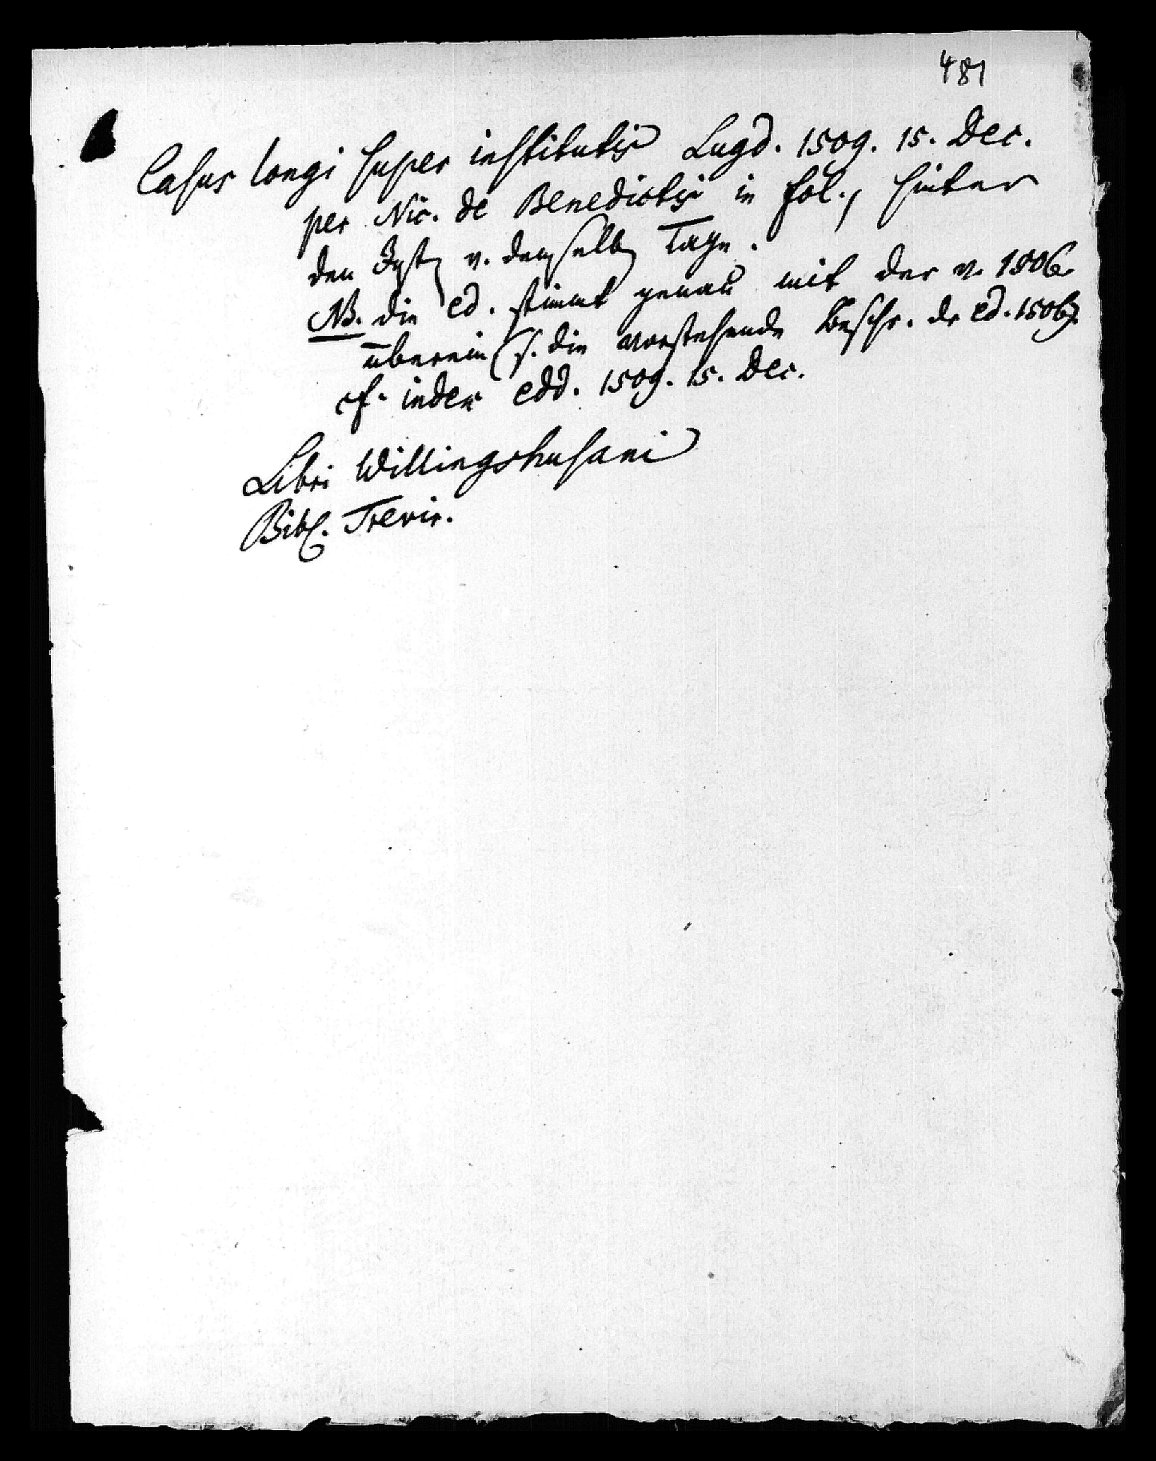 481
Casus longi super institutis Lugd. 1509. 15. Dec.
per Nic. de Benedictis in fol., hinter
den Inst. v. demselben Tage.
NB. die ed. stimmt genau mit der v. 1506.
überein (s. die vorstehende Beschr. dr ed. 1506).
cf. index edd. 1509. 15. Dec.
Libri Willingshusani
Bibl. Trevir.